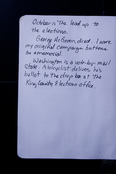 October is the lead up to
the elections.
George McGovern died. I wore
my original campaign buttons
as a memorial.
Washington is a vote-by-mail
state. A bicyclist delivers his
ballot to the drop box at the
King County Elections office.